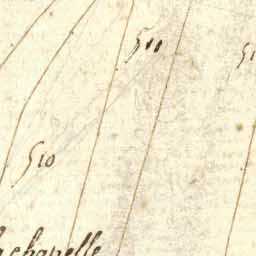 511
510
chapelle